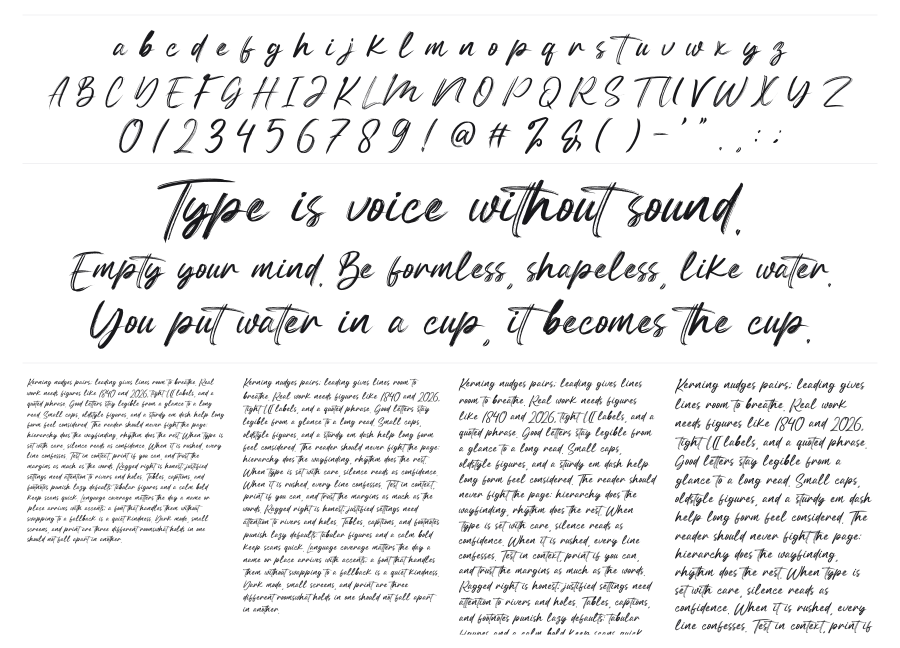 a b c d e f g h i j k l m n o p q r s t u v w x y z
A B C D E F G H I J K L M N O P Q R S T U V W X Y Z
0 1 2 3 4 5 6 7 8 9 ! @ # % & ( ) - ' " . , : ;
Type is voice without sound.
Empty your mind. Be formless, shapeless, like water.
You put water in a cup, it becomes the cup.
Kerning nudges pairs; leading gives lines room to breathe. Real
work needs figures like 1840 and 2026, tight UI labels, and a
quoted phrase. Good letters stay legible from a glance to a long
read. Small caps, oldstyle figures, and a sturdy em dash help long
form feel considered. The reader should never fight the page:
hierarchy does the wayfinding, rhythm does the rest. When type is
set with care, silence reads as confidence. When it is rushed, every
line confesses. Test in context, print if you can, and trust the
margins as much as the words. Ragged right is honest; justified
settings need attention to rivers and holes. Tables, captions, and
footnotes punish lazy defaults: tabular figures and a calm bold
keep scans quick. Language coverage matters the day a name or
place arrives with accents; a font that handles them without
swapping to a fallback is a quiet kindness. Dark mode, small
screens, and print are three different rooms; what holds in one
should not fall apart in another.
Kerning nudges pairs; leading gives lines room to
breathe. Real work needs figures like 1840 and 2026,
tight UI labels, and a quoted phrase. Good letters stay
legible from a glance to a long read. Small caps,
oldstyle figures, and a sturdy em dash help long form
feel considered. The reader should never fight the page:
hierarchy does the wayfinding, rhythm does the rest.
When type is set with care, silence reads as confidence.
When it is rushed, every line confesses. Test in context,
print if you can, and trust the margins as much as the
words. Ragged right is honest; justified settings need
attention to rivers and holes. Tables, captions, and footnotes
punish lazy defaults: tabular figures and a calm bold
keep scans quick. Language coverage matters the day a
name or place arrives with accents; a font that handles
them without swapping to a fallback is a quiet kindness.
Dark mode, small screens, and print are three
different rooms; what holds in one should not fall apart
in another.
Kerning nudges pairs; leading gives lines
room to breathe. Real work needs figures
like 1840 and 2026, tight UI labels, and a
quoted phrase. Good letters stay legible from
a glance to a long read. Small caps,
oldstyle figures, and a sturdy em dash help
long form feel considered. The reader should
never fight the page: hierarchy does the
wayfinding, rhythm does the rest. When
type is set with care, silence reads as
confidence. When it is rushed, every line
confesses. Test in context, print if you can,
and trust the margins as much as the words.
Ragged right is honest; justified settings need
attention to rivers and holes. Tables, captions,
and footnotes punish lazy defaults: tabular
figures and a calm bold keep scans quick.
Kerning nudges pairs; leading gives
lines room to breathe. Real work
needs figures like 1840 and 2026,
tight UI labels, and a quoted phrase.
Good letters stay legible from a
glance to a long read. Small caps,
oldstyle figures, and a sturdy em dash
help long form feel considered. The
reader should never fight the page:
hierarchy does the wayfinding,
rhythm does the rest. When type is
set with care, silence reads as
confidence. When it is rushed, every
line confesses. Test in context, print if